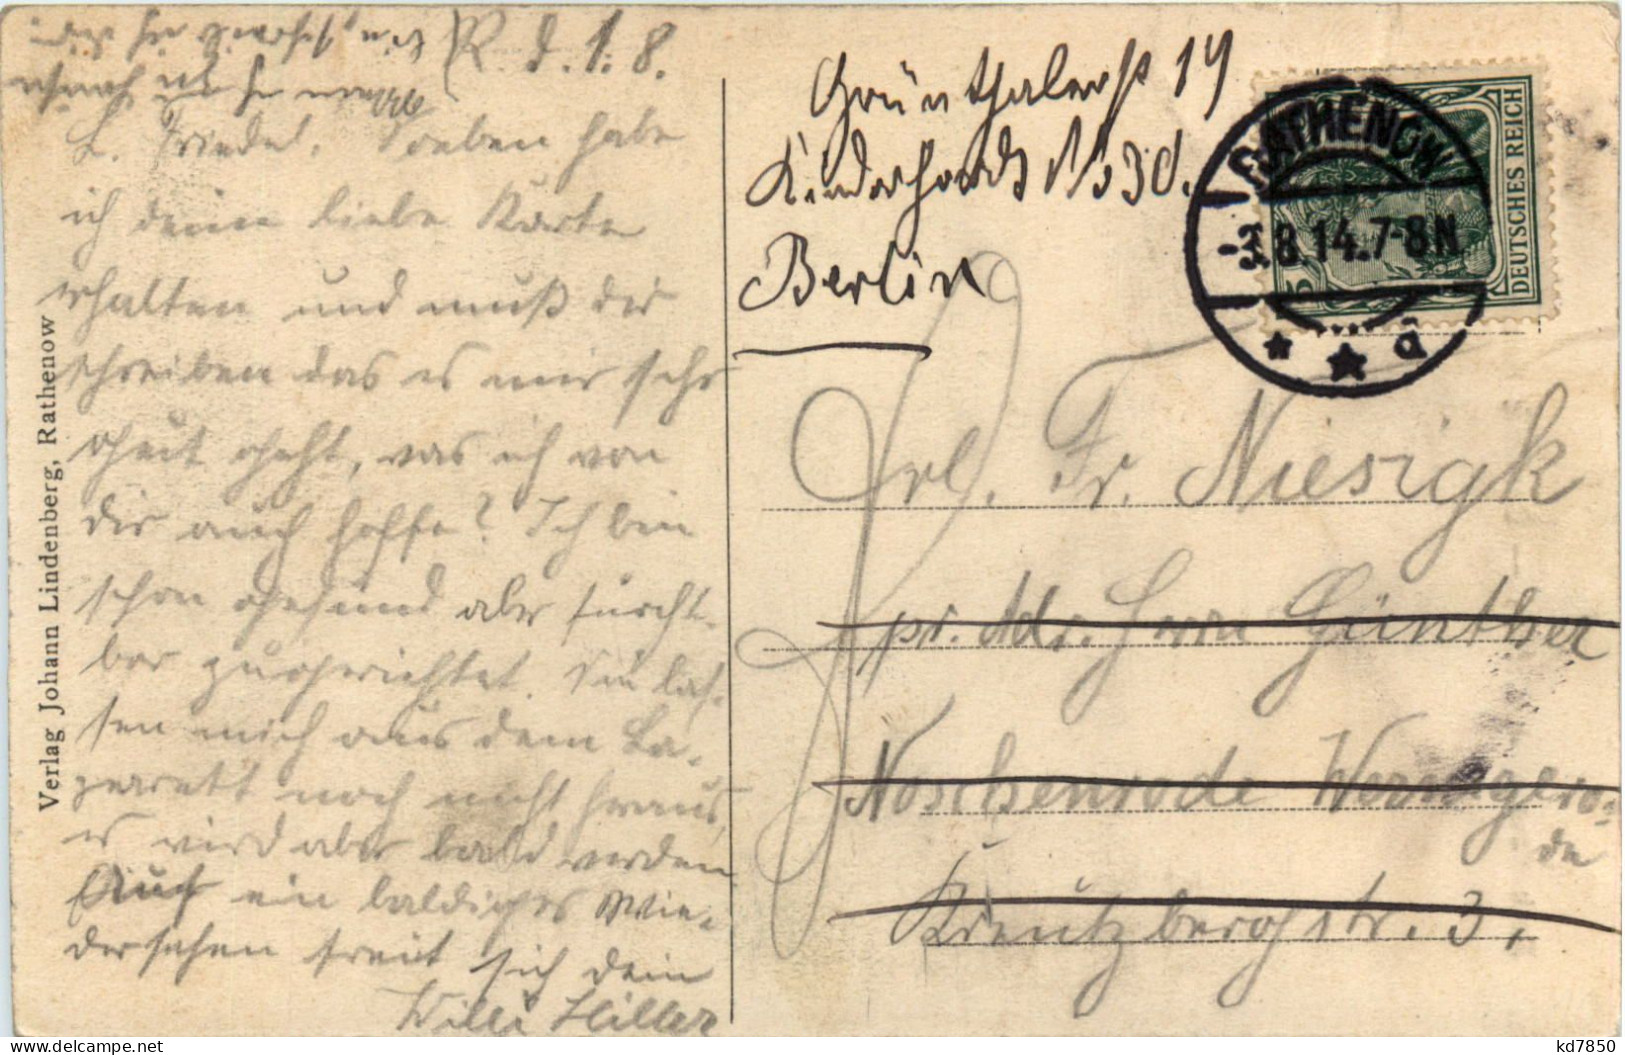 R. d. 1. 8.
L. Friedel. Soeben habe
ich deine liebe Karte
erhalten und muß dir
schreiben das es mir sehr
gut geht, was ich von
dir auch hoffe? Ich bin
schon gesund aber furcht-
bar zugerichtet. Sie las-
sen mich aus dem La-
zarett noch nicht heraus,
es wird aber bald werden
Auf ein baldiges Wie-
dersehen freut sich dein
Willi Hiller
Verlag Johann Lindenberg, Rathenow
Grünthalerst 19
Kinderhords
Berlin
RATHENOW
-3.8.14.7-8N
* * a
DEUTSCHES REICH
5
Frl. Fr. Niesigk
pr. Adr. Herrn Günther
Noschenrode Wernigero-
de
Kreutzbergstr. 3.
kd7850